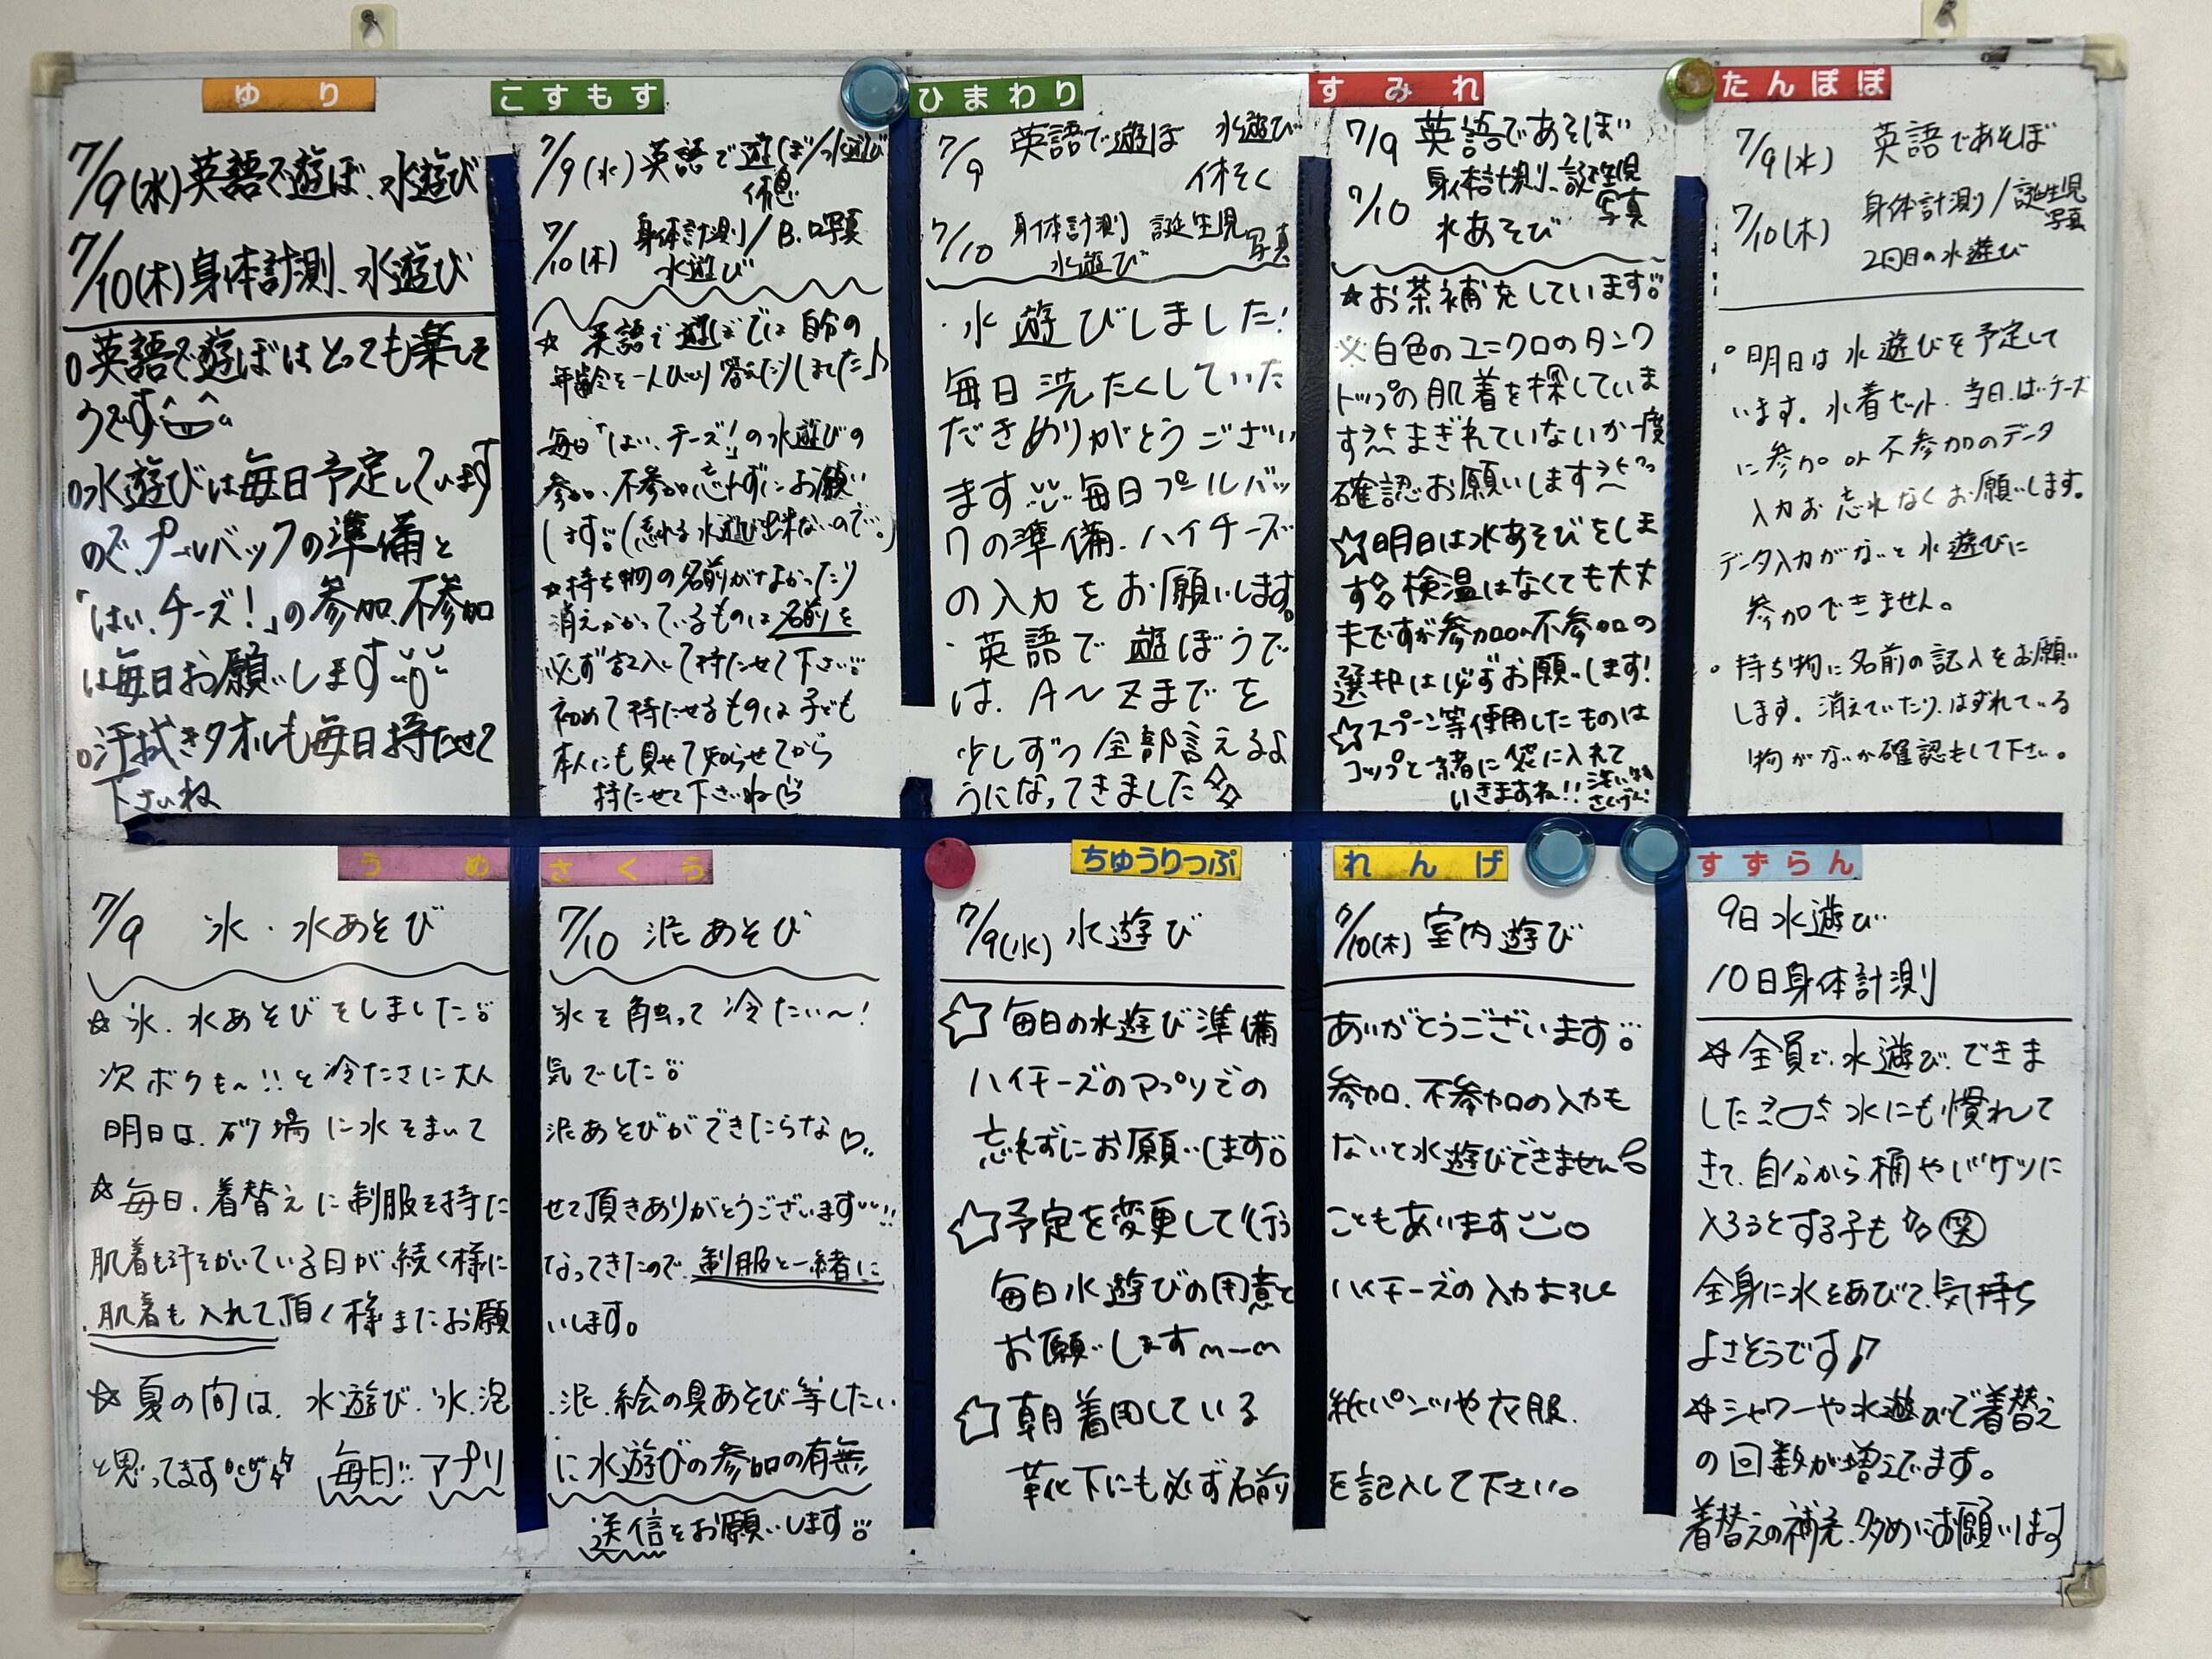 ゆり
7/9(水)英語で遊ぼ、水遊び
7/10(木)身体計測、水遊び
○英語で遊ぼはとっても楽しそ
うです
○水遊びは毎日予定しています
ので、プールバックの準備と
「はい、チーズ！」の参加、不参加
は毎日お願いします
○汗拭きタオルも毎日持たせて
下さいね
こすもす
7/9(水)英語で遊ぼ/水遊び
休息
7/10(木)身体計測/B.D写真
水遊び
☆英語で遊ぼでは自分の
年齢を一人ひとり答えたりしました♪
毎日「はい、チーズ！」の水遊びの
参加、不参加忘れずにお願い
します。(忘れる水遊び出来ないので…。)
★持ち物の名前がなかったり
消えかかっているものは名前を
必ず記入して持たせて下さい
初めて持たせるものは子ども
本人にも見せて知らせてから
持たせて下さいね
ひまわり
7/9 英語で遊ぼ 水遊び
休そく
7/10 身体計測 誕生児写真
水遊び
・水遊びしました！
毎日洗たくしていた
だきありがとうござい
ます 毎日プールバッ
クの準備、ハイチーズ
の入力をお願いします。
・英語で遊ぼうで
は、A～Zまでを
少しずつ全部言えるよ
うになってきました
すみれ
7/9 英語であそぼ
7/10 身体計測、誕生児写真
水あそび
☆お茶補充しています
※白色のユニクロのタンク
トップの肌着を探していま
す まぎれていないか一度
確認お願いします
☆明日は水あそびをしま
す 検温はなくても大丈
夫ですが参加or不参加の
選択は必ずお願いします！
☆スプーン等使用したものは
コップと一緒に袋に入れて
いきますね!!
たんぽぽ
7/9(水) 英語であそぼ
7/10(木) 身体計測/誕生児写真
2回目の水遊び
○明日は水遊びを予定して
います。水着セット、当日、はいチーズ
に参加or不参加のデータ
入力お忘れなくお願いします。
データ入力がないと水遊びに
参加できません。
○持ち物に名前の記入をお願い
します。消えていたり、はずれている
物がないか確認もして下さい。
うめ さくら
7/9 氷・水あそび 7/10 泥あそび
☆氷、水あそびをしました 氷を触って冷たい～！
次ボクも～!!と冷たさに大人気でした
明日は、砂場に水をまいて泥あそびができたらな♡
☆毎日、着替えに制服を持たせて頂きありがとうございます!!
肌着も汗をかいている日が続く様になってきたので、制服と一緒に
肌着も入れて頂く様またお願いします。
☆夏の間は、水遊び、氷、泡、泥、絵の具あそび等したい
と思ってます 毎日!! アプリに水遊びの参加の有無
送信をお願いします
ちゅうりっぷ れんげ
7/9(水) 水遊び 7/10(木) 室内遊び
☆毎日の水遊び準備ありがとうございます
ハイチーズのアプリでの参加、不参加の入力も
忘れずにお願いします。ないと水遊びできません
☆予定を変更して行うこともあります
毎日水遊びの用意とハイチーズの入力よろしく
お願いしますm―m
☆朝着用している紙パンツや衣服、
靴下にも必ず名前を記入して下さい。
すずらん
9日水遊び
10日身体計測
☆全員で、水遊びできま
した 水にも慣れて
きて、自分から桶やバケツに
入ろうとする子も 笑
全身に水をあびて、気持ち
よさそうです♪
☆シャワーや水遊びで着替え
の回数が増えてます。
着替えの補充、多めにお願いします